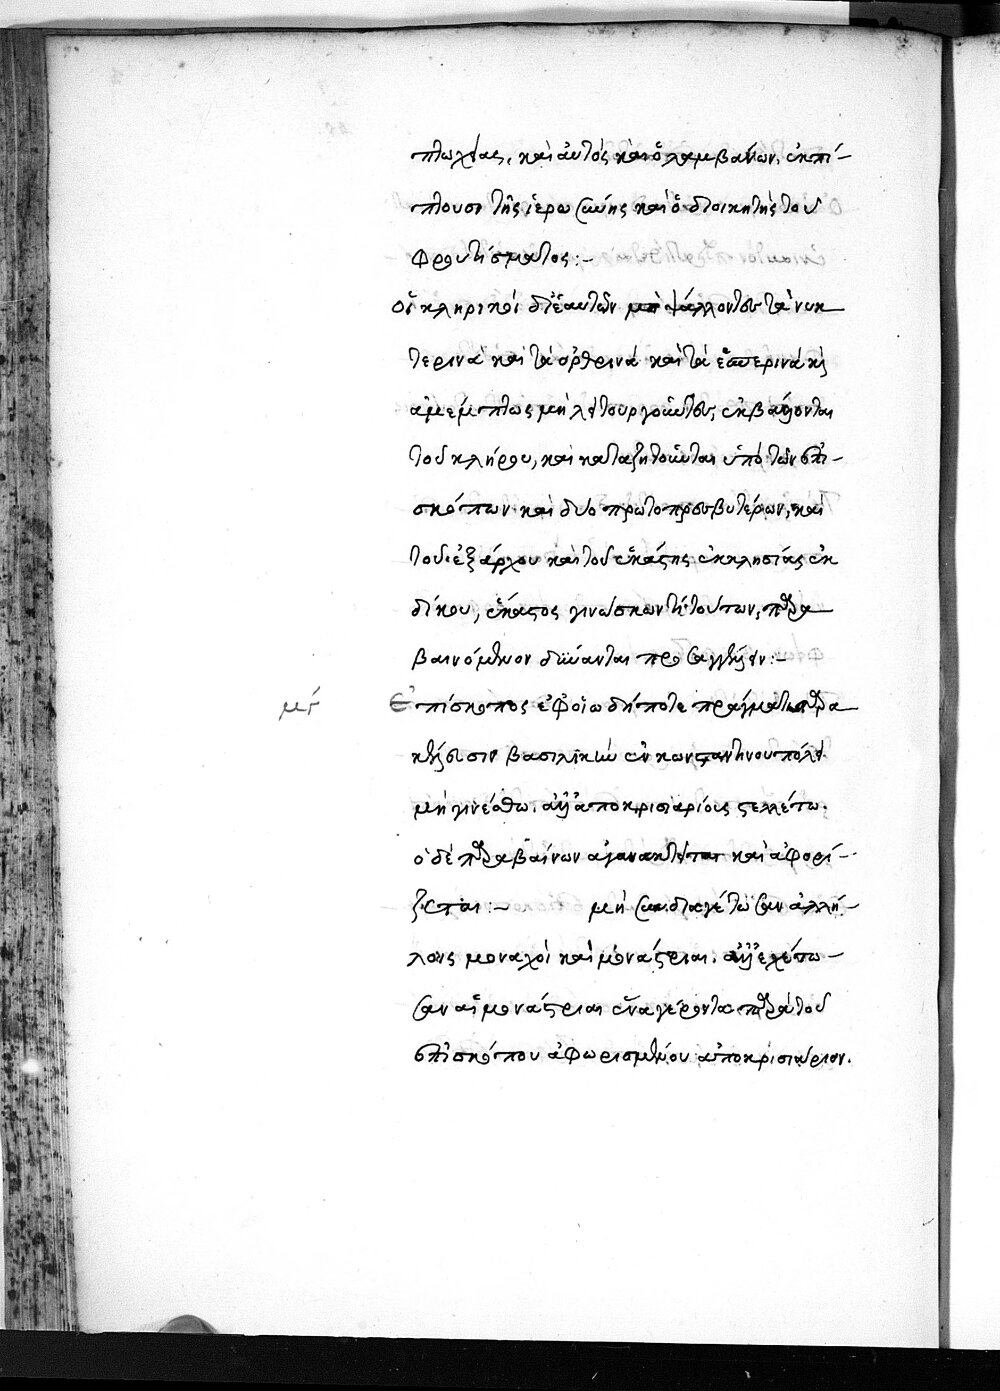 πτωχείας, καὶ αὐτὸς καὶ ὁ λαμβάνων, ἐκπί-
πτουσι τῆς ἱερωσύνης καὶ ὁ διοικητὴς τοῦ
φροντίσματος:-
Οἱ κληρικοὶ δι' ἑαυτῶν μὴ ψάλλοντες τὰ νυκ
τερινὰ καὶ τὰ ὀρθρινὰ καὶ τὰ ἑσπερινὰ κὶ
ἀμέμπτως μὴ λειτουργοῦντες, ἐκβάλλονται
τοῦ κλήρου, καὶ καταζητοῦνται ὑπὸ τῶν ἐπι-
σκόπων καὶ δύο πρωτοπρεσβυτέρων, καὶ
τοῦ ἐξάρχου καὶ τοῦ ἑκάστης ἐκκλησίας ἐκ
δίκου, ἕκαστος γινώσκων τὶ τούτων, παρα
βαινόμενον δύναται προσαγγέλειν:-
μγ Ἐπίσκοπος ἐφ' οἵῳ δήποτε πράγματι παρα
κλήσεσιν βασιλικῶν ἐν κωνσταντινουπόλει
μὴ γινέσθω. ἀλλ' ἀποκρισιαρίοις στελλέτω.
ὁ δὲ παραβαίνων ἀγανακτεῖται καὶ ἀφορί-
ζεται:- μὴ συνδιαγέτωσαν ἀλλή-
λοις μοναχοὶ καὶ μονάστριαι. ἀλλ' ἐχέτω-
σαν αἱ μονάστριαι ἕνα γέροντα παρὰ τοῦ
ἐπισκόπου ἀφωρισμένου ἀποκρισιάριον.